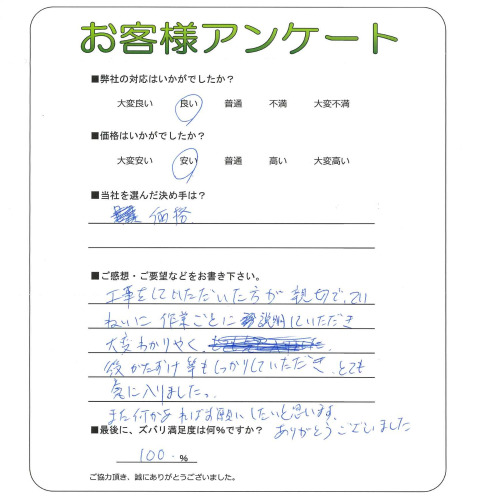 お客様アンケート
■弊社の対応はいかがでしたか？
大変良い 良い 普通 不満 大変不満
■価格はいかがでしたか？
大変安い 安い 普通 高い 大変高い
■当社を選んだ決め手は？
価格
■ご感想・ご要望などをお書き下さい。
工事をしていただいた方が 親切で、てい
ねいに 作業ごとに 説明していただき
大変わかりやく、
後かたずけ等もしっかりしていただき とても
気に入りましたっ
また何かあればお願いしたいと思います。
ありがとうございました
■最後に、ズバリ満足度は何%ですか？
100 %
ご協力頂き、誠にありがとうございました。